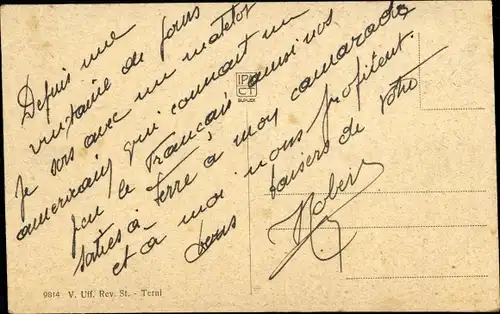 Depuis une
vingtaine de jours
Je sors avec un matelot
americain qui connait un
peu le Français, aussi nos
sorties à Terre à mon camarade
et à moi nous profitent.
bons baisers de votre
Robert
9814 V. Uff. Rev. St. - Terni